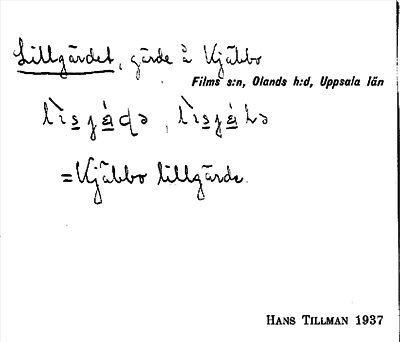 Lillgärdet, gärde å Kjäbbo
Films s:n, Olands h:d, Uppsala län
=Kjäbbo lillgärde.
HANS TILLMAN 1937